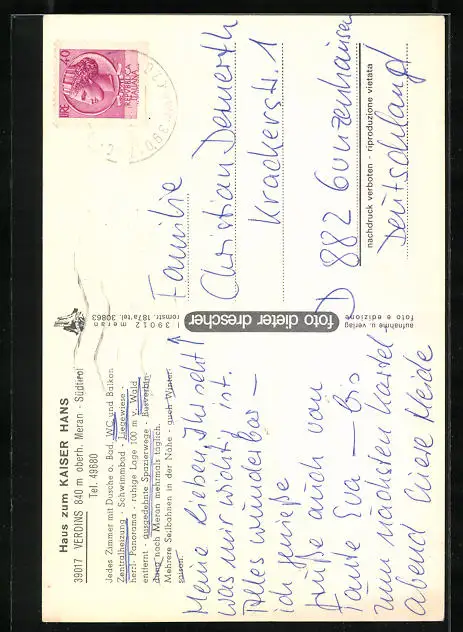 Haus zum KAISER HANS
39017 VERDINS 840 m oberh. Meran - Südtirol
Tel. 49680
Jedes Zimmer mit Dusche o. Bad, WC und Balkon
Zentralheizung - Schwimmbad - Liegewiese -
herrl. Panorama - ruhige Lage 100 m v. Wald
entfernt - ausgedehnte Spazierwege - Busverbin-
dung nach Meran mehrmals täglich.
Mehrere Seilbahnen in der Nähe - auch Winter-
saison.
Meine Lieben, Ihr seht!
was mir wichtig ist.
Alles wunderbar -
ich genieße
Grüße auch von
Tante Eva - Bis
zum nächsten Kartel
abend Eure Heide
foto dieter drescher
I 39012 meran
romstr. 187a tel. 30863
aufnahme u. verlag
foto e edizione
nachdruck verboten - riproduzione vietata
LIRE 40
REPVBBLICA
ITALIANA
Familie
Christian Demerth
Krackerstr. 1
D 882 Gunzenhausen
Deutschland